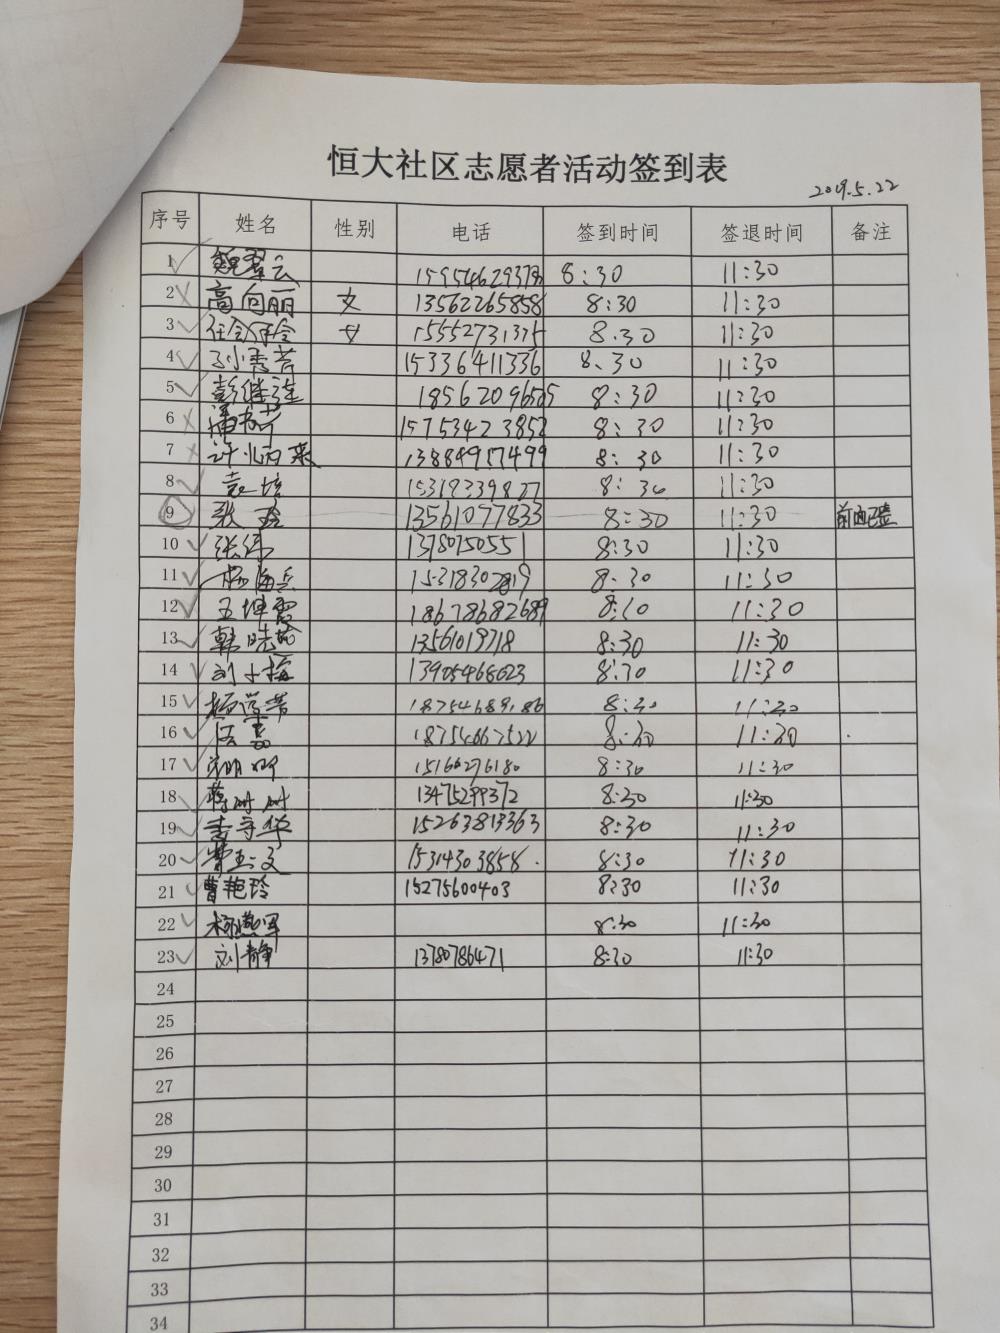 恒大社区志愿者活动签到表
2019.5.22
序号 姓名 性别 电话 签到时间 签退时间 备注
1 魏翠云 15954629373 8:30 11:30
2 高向丽 女 13562265858 8:30 11:30
3 女 15552731375 8:30 11:30
4 孙秀芳 15336411336 8:30 11:30
5 彭继莲 18562096505 8:30 11:30
6 15753423852 8:30 11:30
7 许炳来 13884957499 8:30 11:30
8 袁培 8:30 11:30
9 张玲 13561077833 8:30 11:30
10 张伟 13780750551 8:30 11:30
11 杨海兵 8:30 11:30
12 王坤霞 18678682689 8:30 11:30
13 韩晓菊 8:30 11:30
14 刘小梅 13905468623 8:30 11:30
15 杨学芳 18754689186 8:30 11:30
16 18754667522 8:30 11:30
17 15166276180 8:30 11:30
18 蒋树树 13475299372 8:30 11:30
19 李守华 15263813363 8:30 11:30
20 曹玉文 15314303858 8:30 11:30
21 曹艳玲 15275600403 8:30 11:30
22 杨燕军 8:30 11:30
23 刘静 13780786471 8:30 11:30
24
25
26
27
28
29
30
31
32
33
34